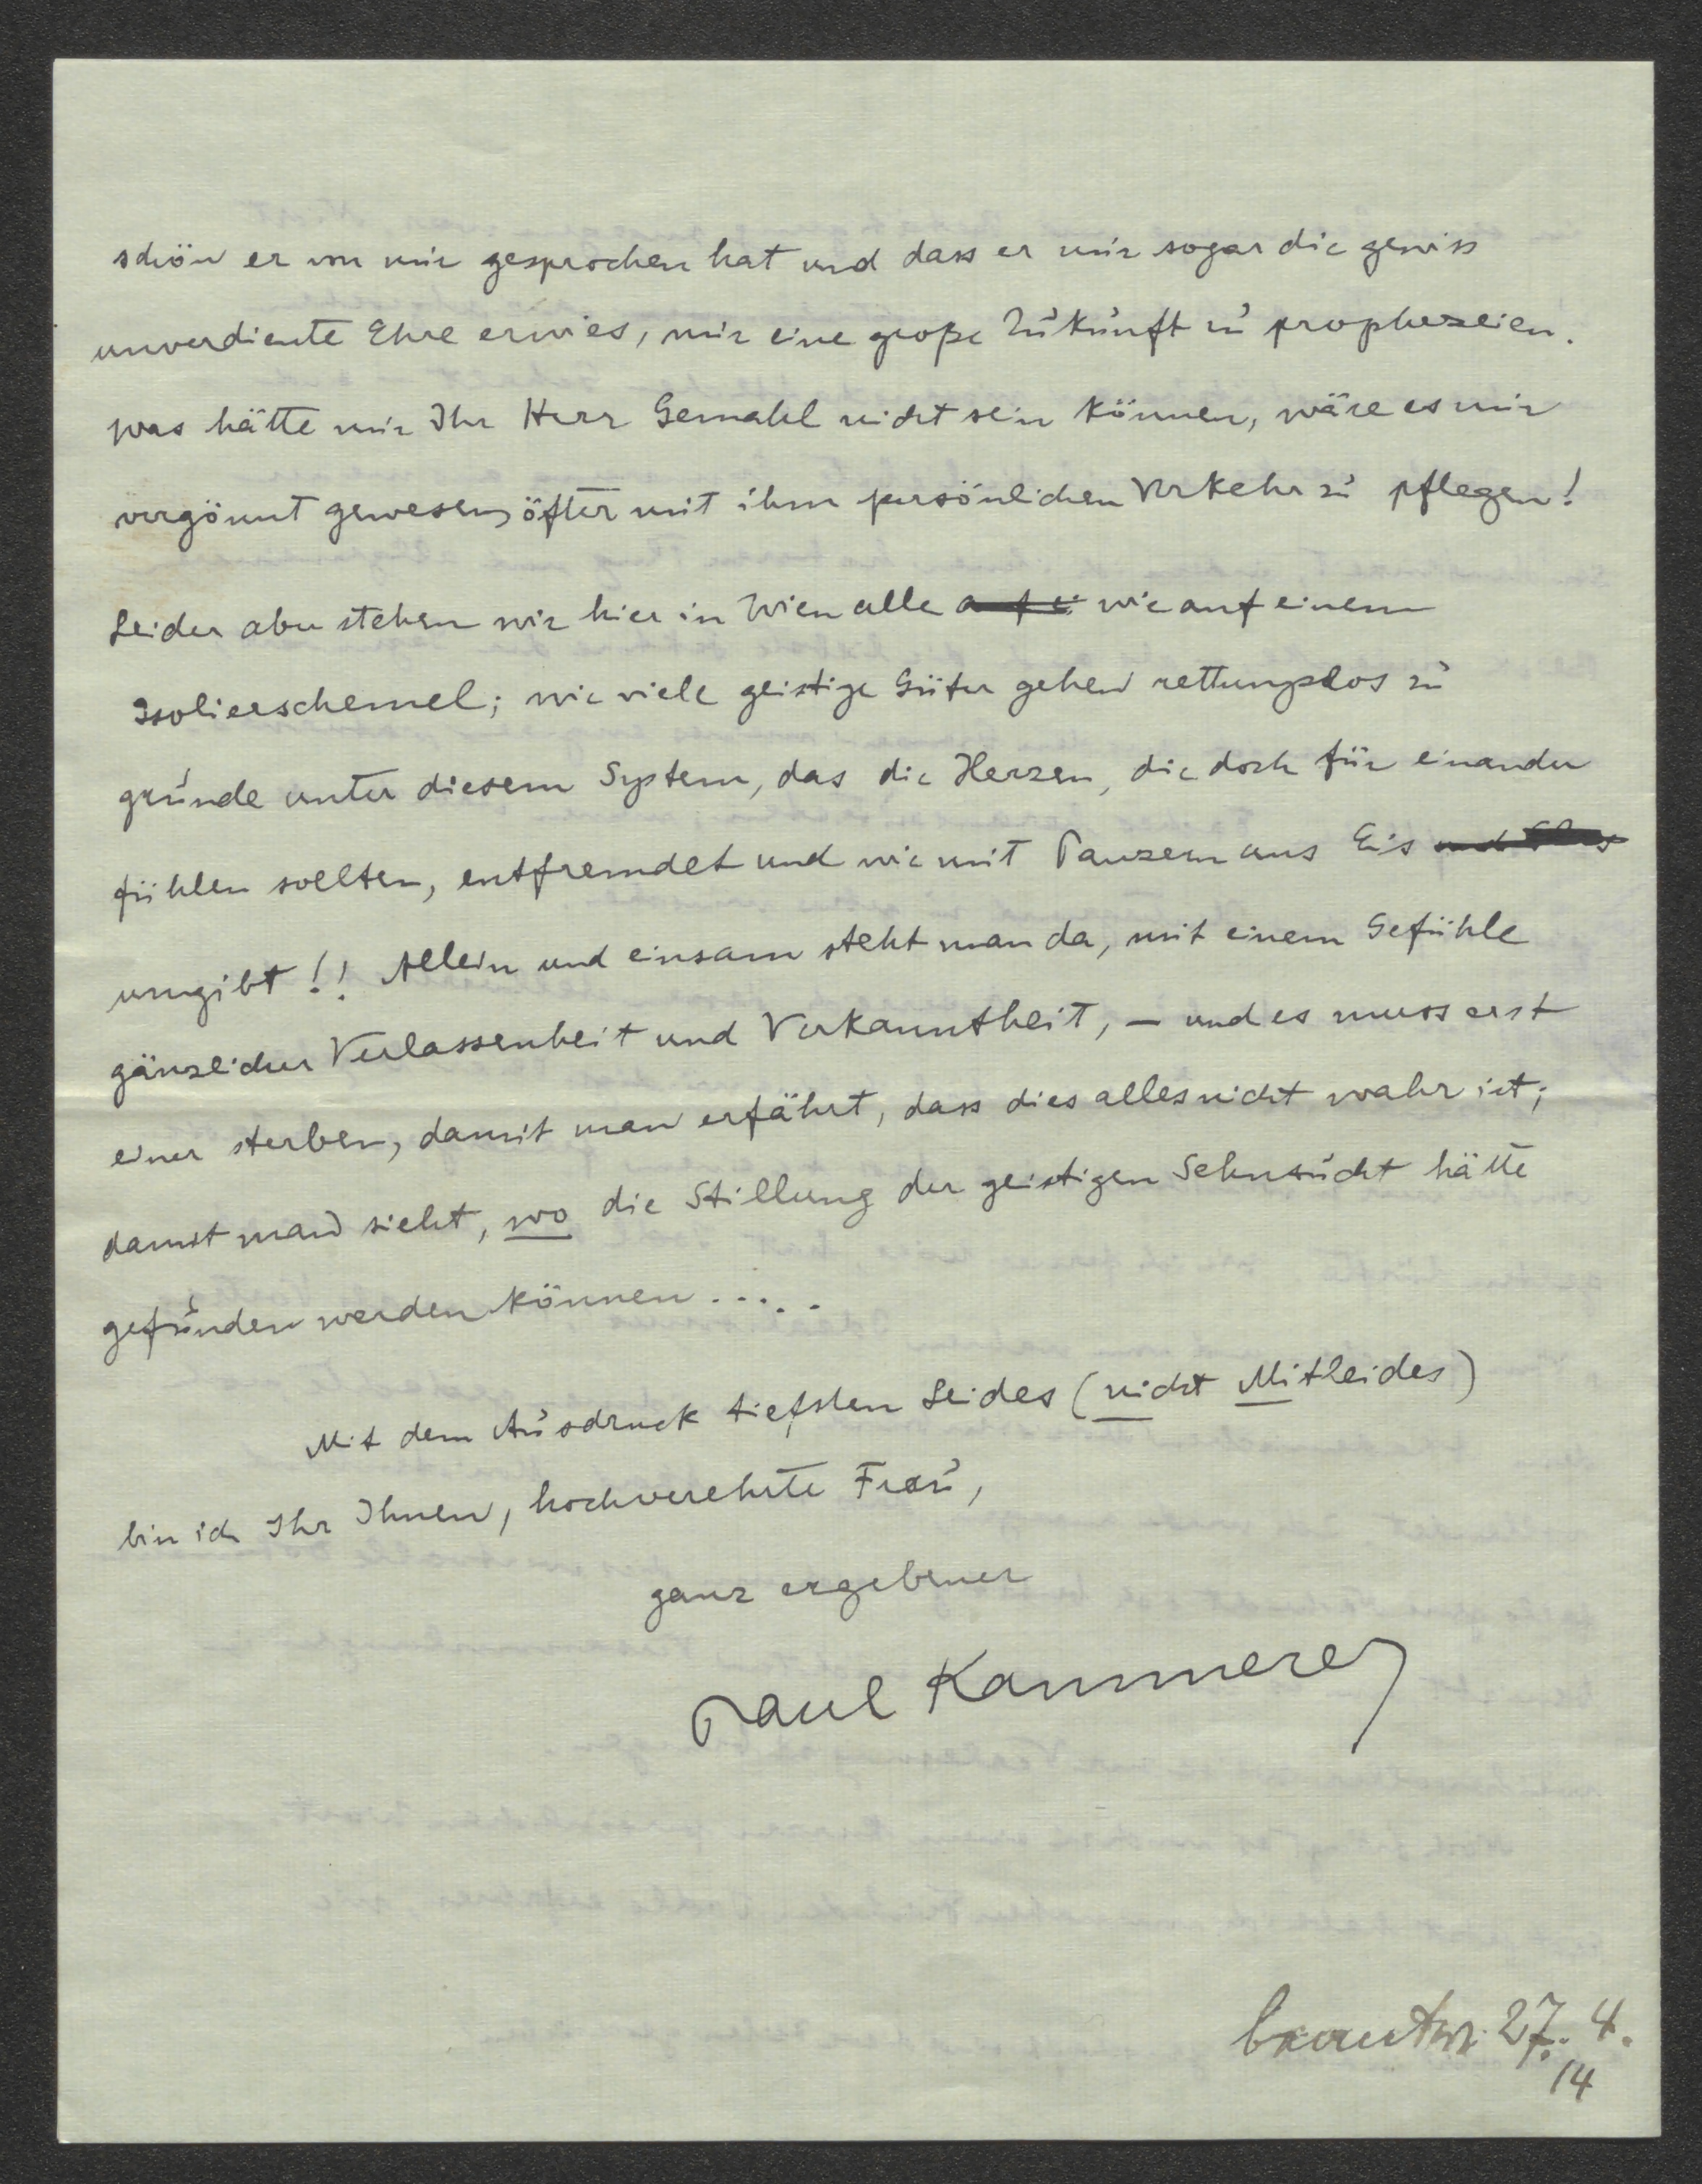 schön er von mir gesprochen hat und dass er mir sogar die gewiss
unverdiente Ehre erwies, mir eine große Zukunft zu prophezeien.
Was hätte mir Ihr Herr Gemahl nicht sein können, wäre es mir
vergönnt gewesen, öfter mit ihm persönlichen Verkehr zu pflegen!
Leider aber stehen wir hier in Wien alle auf ei wie auf einem
Isolierschemel; wie viele geistige Güter gehen rettungslos zu
grunde unter diesem System, das die Herzen, die doch für einander
fühlen sollten, entfremdet und wie mit Panzern aus Eis und
umgibt!! Allein und einsam steht man da, mit einem Gefühle
gänzlicher Verlassenheit und Verkanntheit, — und es muss erst
einer sterben, damit man erfährt, dass dies alles nicht wahr ist;
damit man sieht, wo die Stillung der geistigen Sehnsucht hätte
gefunden werden können .....
Mit dem Ausdruck tiefsten Leides (nicht Mitleides)
bin ich Ihr Ihnen, hochverehrte Frau,
ganz ergebener
Paul Kammerer
beantw. 27. 4.
14